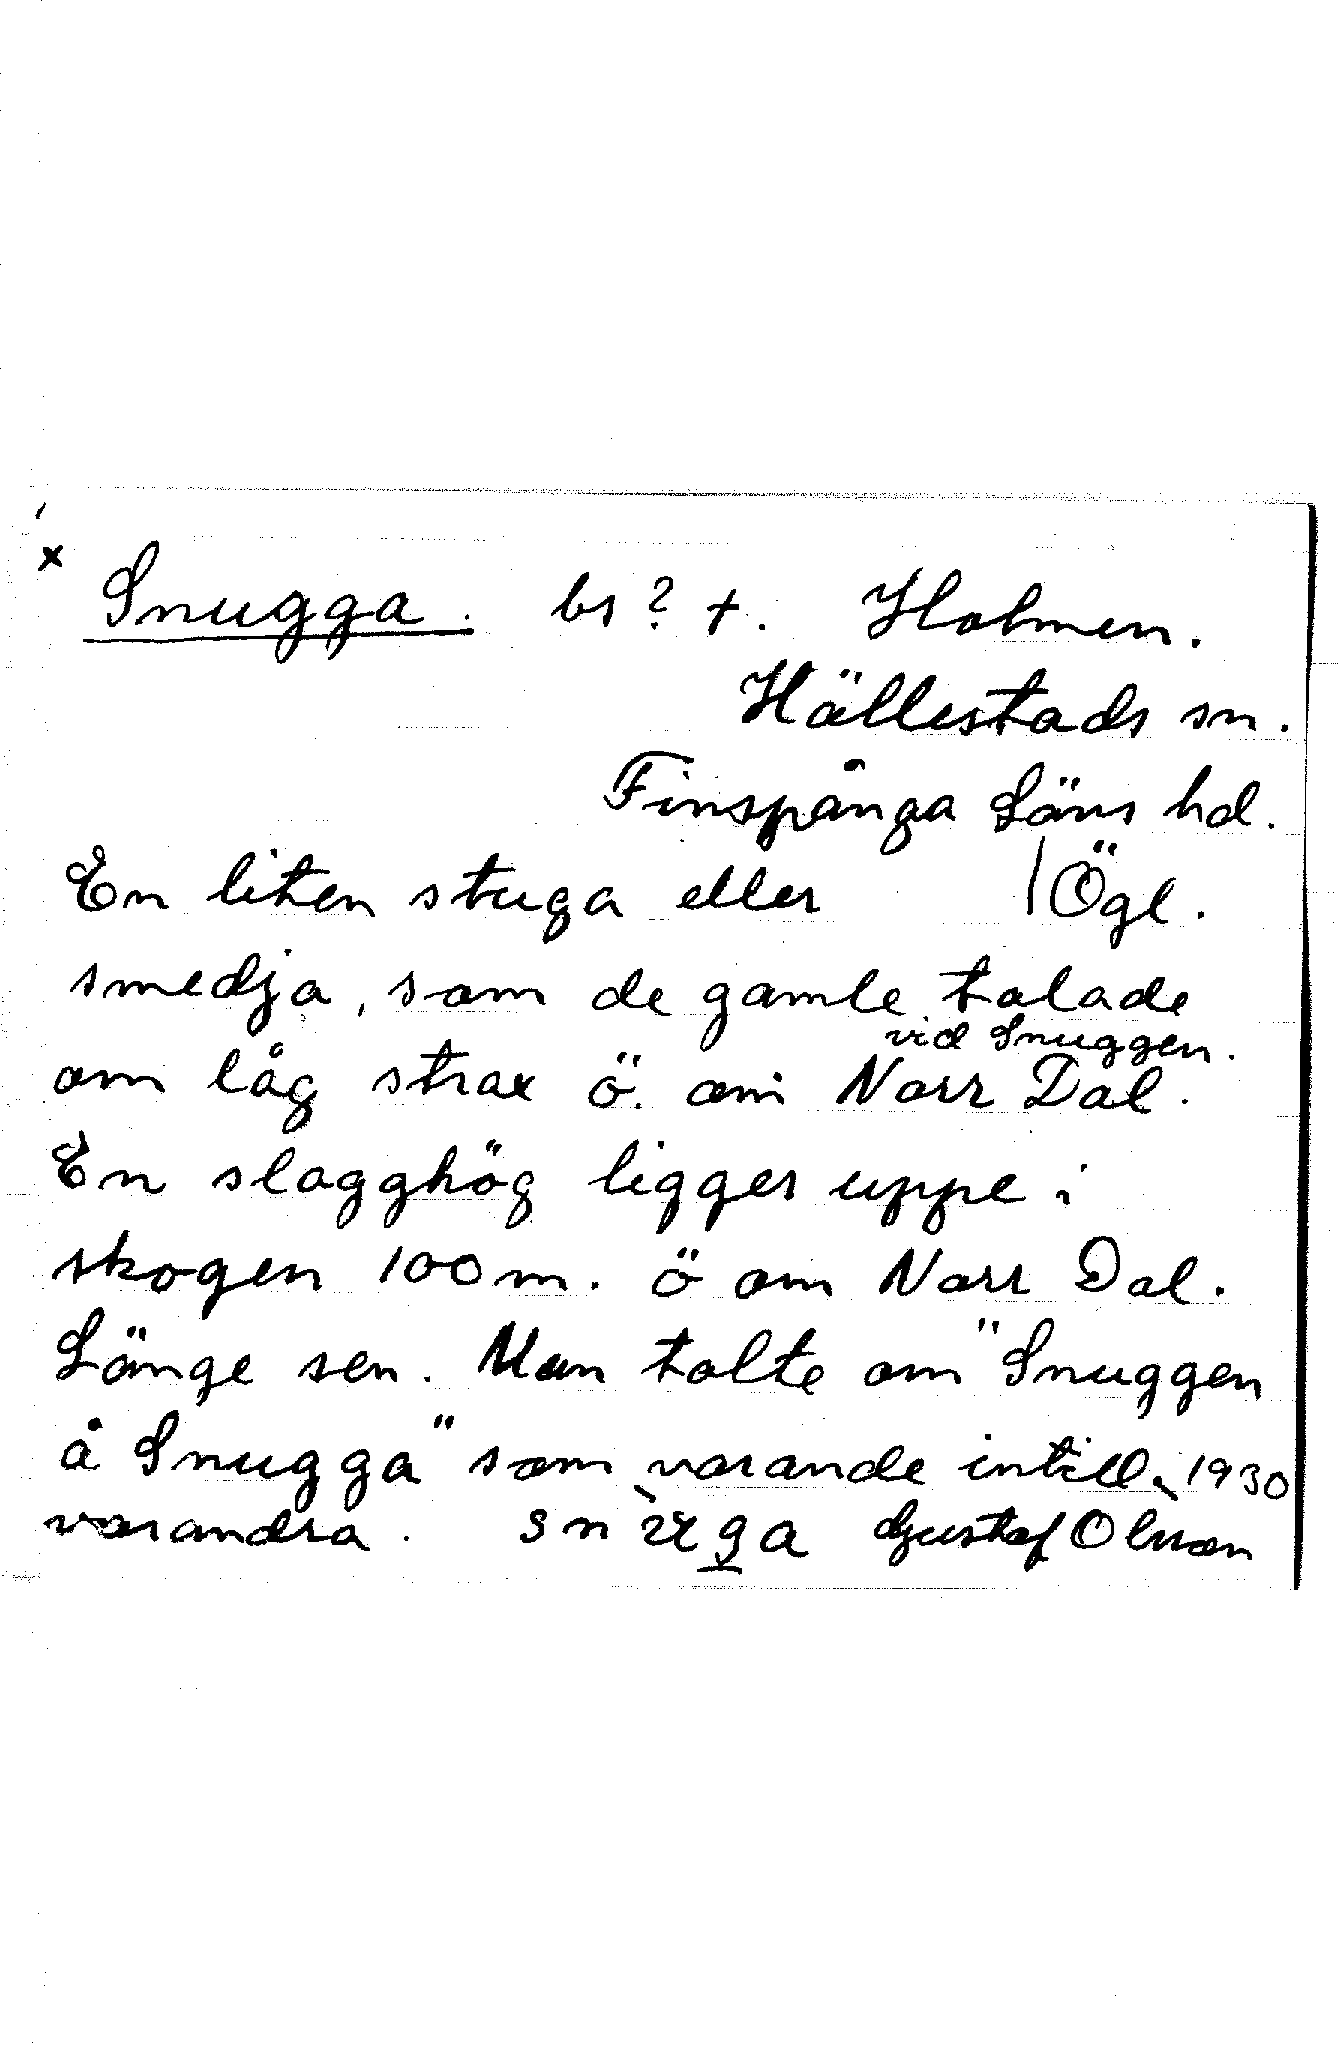 x
Snugga. bs? +. Holmen.
Hällestads sn.
Finspånga Läns hd.
En liten stuga eller /Ögl.
smedja, som de gamle talade
vid Snuggen.
om låg strax ö. om Norr Dal.
En slagghög ligger uppe i
skogen 100 m. ö om Norr Dal.
Länge sen. Man talte om "Snuggen
å Snugga" som varande intill 1930
varandra. snùga Gustaf Olsson